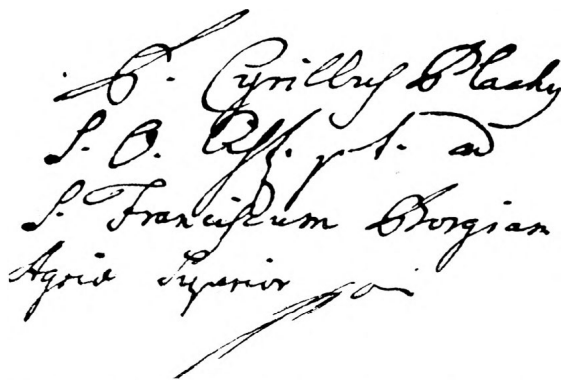 P. Cyrillus Plachy
S. O. Cist. p. t. ad
S. Franciscum Borgiam
Agriæ Superior